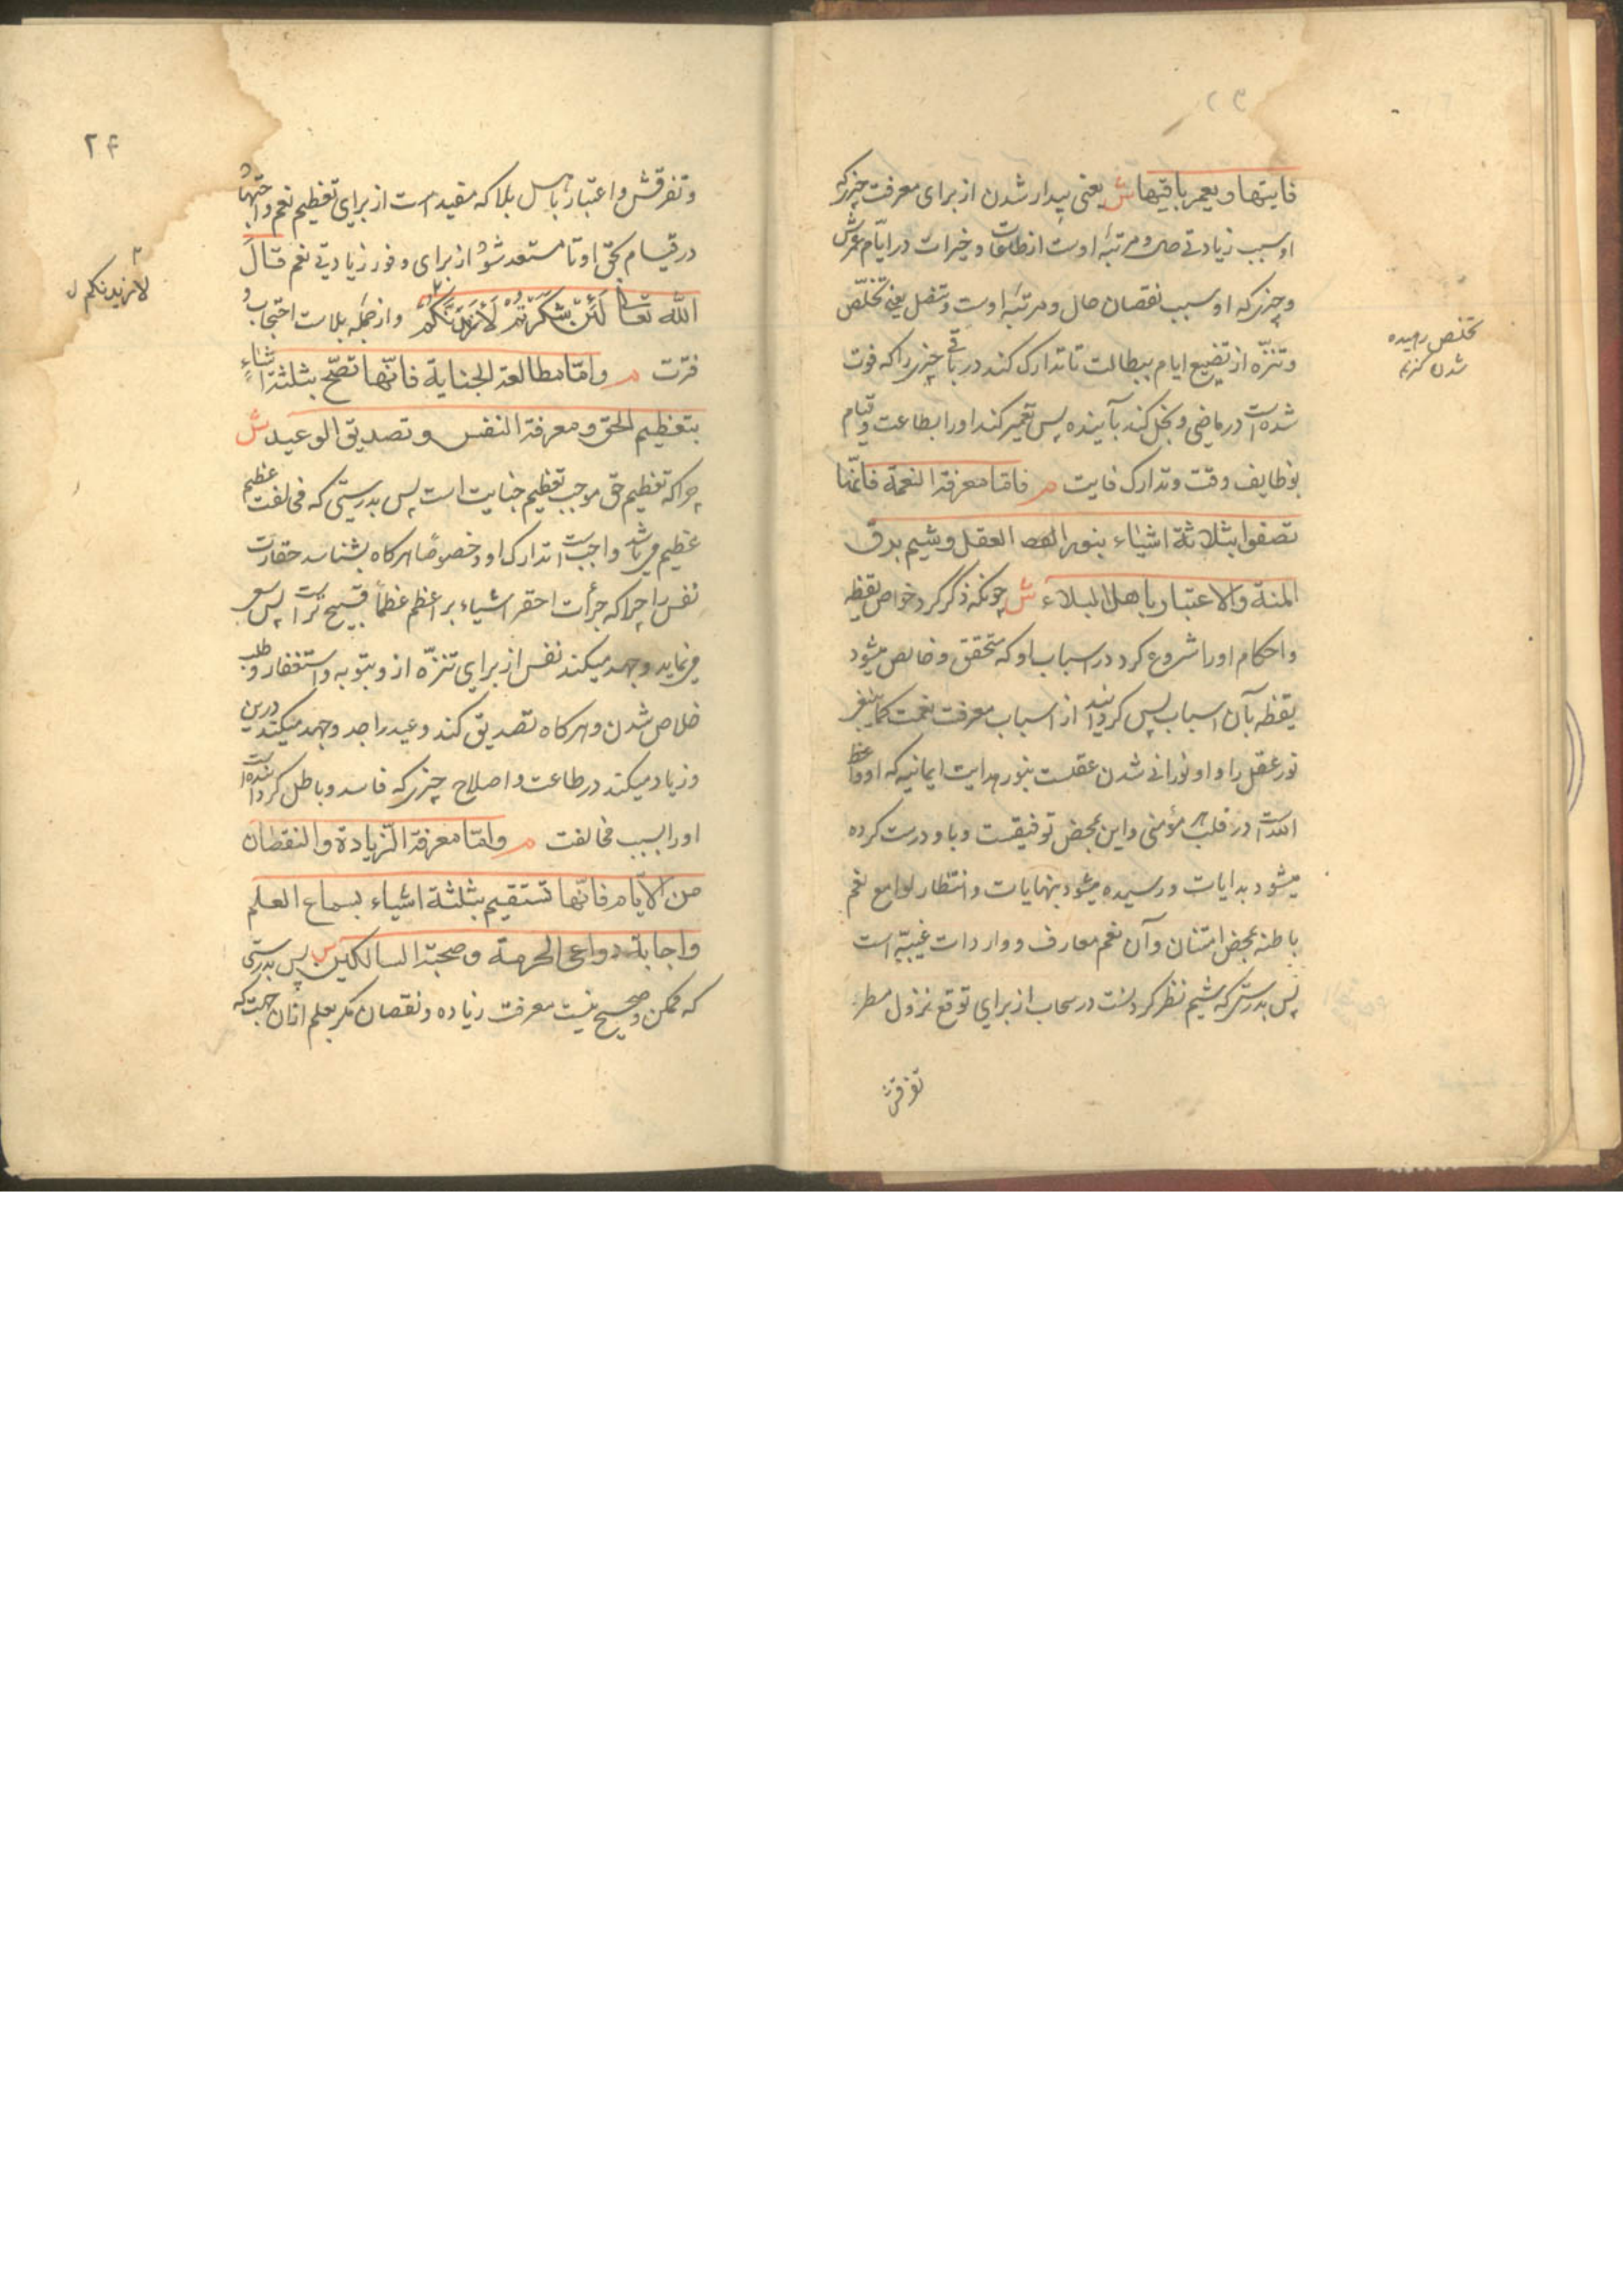 ۲۳
فایتها و یعمر باقیها ش یعنی بیدار شدن از برای معرفت چیزیکه
او سبب زیادتی حال و مرتبهٔ اوست از طاعات و خیرات در ایّام عمرش
و چیزی که او سبب نقصان حال و مرتبهٔ اوست و تنصل یعنی تخلّص
و تنزّه از تضییع ایام ببطالت تا تدارک کند در باقی چیزی را که فوت
شده است در ماضی و بخل کند بآینده پس تعمیر کند او را بطاعت و قیام
بوظایف وقت و تدارک فایت م فاما معرفة النعمة فانّها
تصفوا بثلاثة اشیاء بنور العقل و شیم برق
المنة و الاعتبار باهل البلاء ش چونکه ذکر کرد خواص یقظه
و احکام او را شروع کرد در اسباب او که متحقق و خالص میشود
یقظه بآن اسباب پس کردانید از اسباب معرفت نعمت
نور عقل را و او نورانی شدن عقلست بنور هدایت ایمانیه که او واعظ
اللّه است در قلب هر مؤمنی و این بمحض توفیقست و باو درست کرده
میشود بدایات و رسیده میشود بنهایات و انتظار لوامع نعم
باطنه بمحض امتنان و آن نعم معارف و واردات غیبیّه است
پس بدرستی که شیم نظر کردنست در سحاب از برای توقع نزول مطر
تفرقش
تخلص رهیده
شدن
۲۴
و تفرقش و اعتبار باهل بلا که مفید است از برای تعظیم نعم و اجتهاد
در قیام بحق او تا مستعد شود از برای وفور زیادتی نعم قال
اللّه تعالی لَئِنْ شَکَرْتُمْ لَأَزِیدَنَّکُمْ و از جمله بلاست احتجاب و
فترت م و امّا مطالعة الجنایة فانّها تصحّ بثلثة اشیاءٍ
بتعظیم الحق و معرفة النفس و تصدیق الوعید ش
چرا که تعظیم حق موجب تعظیم جنایت است پس بدرستی که مخالفت عظیم
عظیم میباشد و واجبست تدارک او و خصوصًا هرکاه بشناسد حقارت
نفس را چرا که جرأت احقر اشیاء بر اعظم عظماً قبیح تر است پس سعی
مینماید و جهد میکند نفس از برای تنزّه ازو بتوبه و استغفار و طلب
خلاص شدن و هرکاه تصدیق کند وعید را جد و جهد میکند درین
و زیاد میکند در طاعت و اصلاح چیزی که فاسد و باطل کردانیده است
او را بسبب مخالفت م و امّا معرفة الزّیادة و النقصان
من الایّام فانّها تستقیم بثلثة اشیاء بسماع العلم
و اجابة دواعی الحرمة و صحبة السالکین ش پس بدرستی
که ممکن و صحیح نیست معرفت زیاده و نقصان مکر بعلم ازان جهت که
لازیدنکم ل